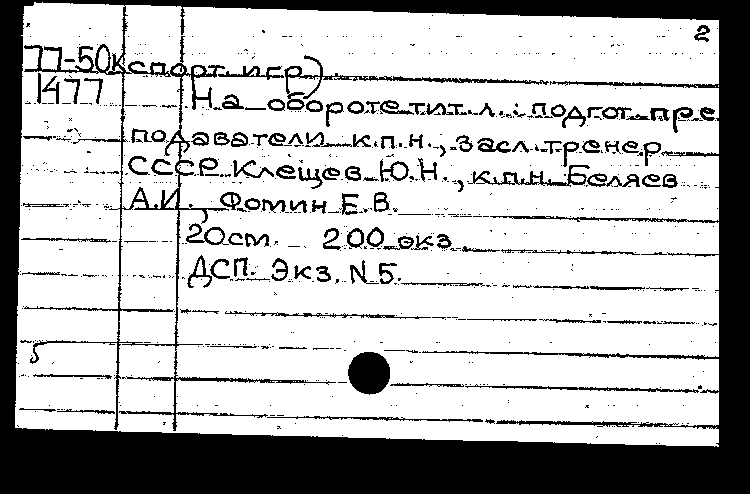 2
77-50к спорт. игр)
1477 На обороте тит. л.: подгот. пре
подаватели к.п.н., засл. тренер
СССР Клещев Ю.Н., к.п.н. Беляев
А.И., Фомин Е.В.
20см. 200 экз.
ДСП. Экз. N 5.
5